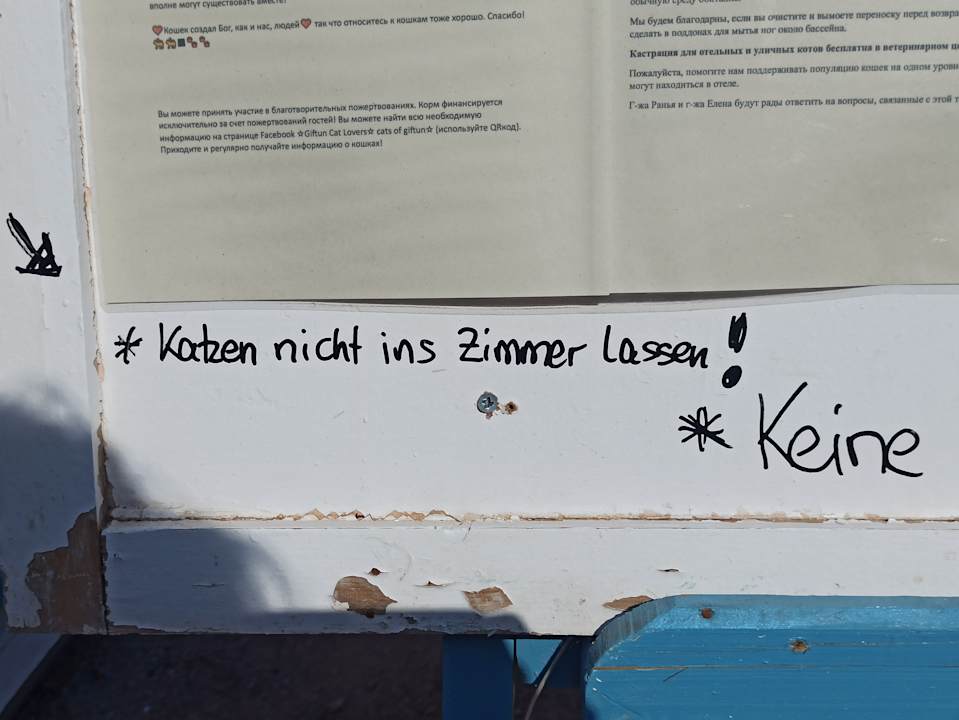 вполне могут существовать вместе!
❤Кошек создал Бог, как и нас, людей❤ так что относитесь к кошкам тоже хорошо. Спасибо!
Вы можете принять участие в благотворительных пожертвованиях. Корм финансируется
исключительно за счет пожертвований гостей! Вы можете найти всю необходимую
информацию на странице Facebook ☆Giftun Cat Lovers☆ cats of giftun☆ (используйте QRкод).
Приходите и регулярно получайте информацию о кошках!
обычную среду
Мы будем благодарны, если вы очистите и вымоете переноску перед
сделать в поддонах для мытья ног около бассейна.
Кастрация для отельных и уличных котов бесплатна в ветеринарном
Пожалуйста, помогите нам поддерживать популяцию кошек на одном
могут находиться в отеле.
Г-жа Ранья и г-жа Елена будут рады ответить на вопросы, связанные с этой
* Katzen nicht ins Zimmer lassen!
* Keine